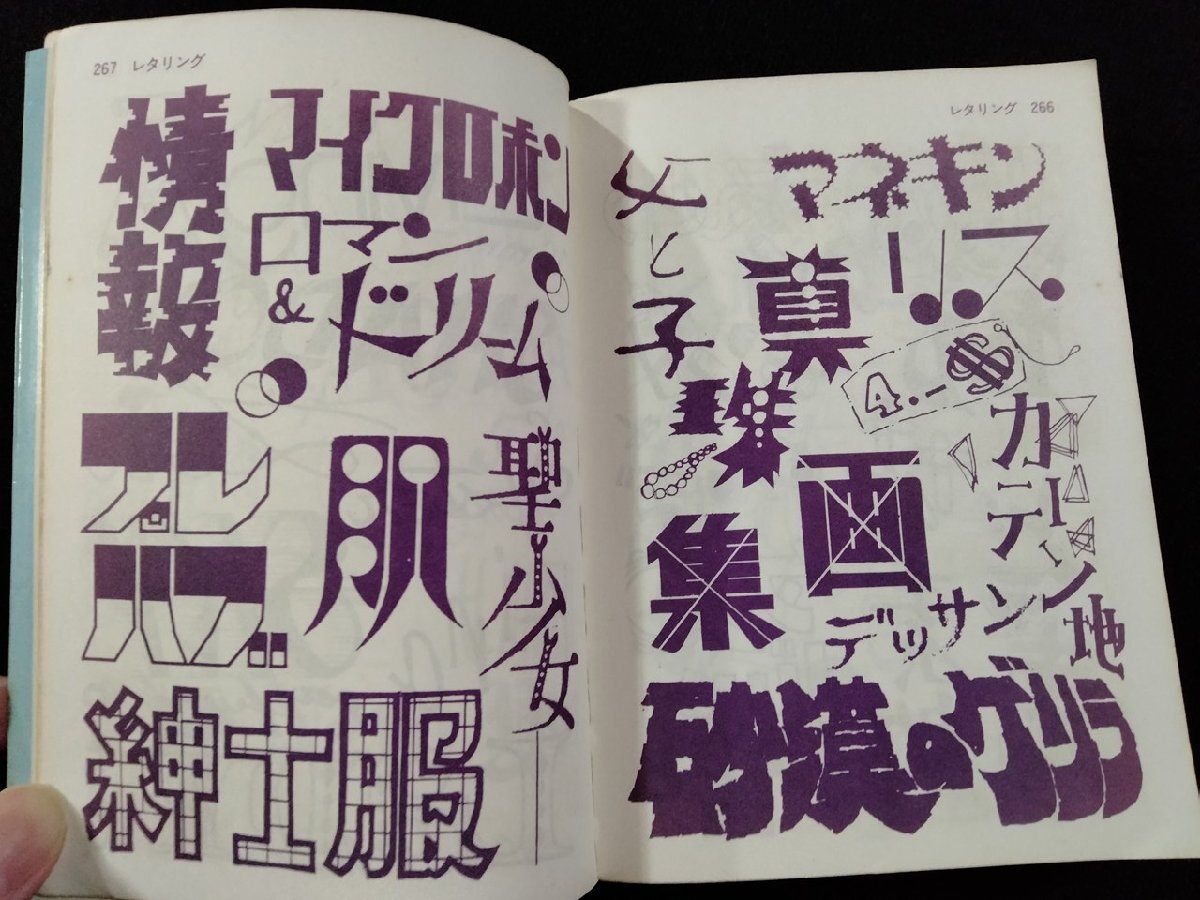 レタリング 266
マネキン
父と子
リス
真珠
4.-$
カーテン地
画
集
デッサン
砂漠のゲリラ
267 レタリング
マイクロホン
情報
ロマン
&
ドリーム
プレ
ハブ
肌
聖少女
紳士服